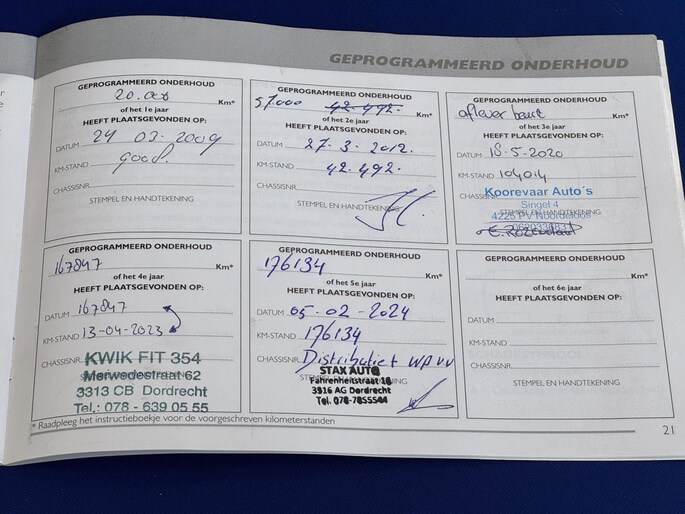 GEPROGRAMMEERD ONDERHOUD
GEPROGRAMMEERD ONDERHOUD
20.000 Km*
of het 1e jaar
HEEFT PLAATSGEVONDEN OP:
DATUM 24 02-2009
KM-STAND
CHASSISNR.
STEMPEL EN HANDTEKENING
GEPROGRAMMEERD ONDERHOUD
57.000 42.492. Km*
of het 2e jaar
HEEFT PLAATSGEVONDEN OP:
DATUM 27-3-2012.
KM-STAND 42.492.
CHASSISNR.
STEMPEL EN HANDTEKENING
GEPROGRAMMEERD ONDERHOUD
aflever beurt Km*
of het 3e jaar
HEEFT PLAATSGEVONDEN OP:
DATUM 18-5-2020
KM-STAND 104014
CHASSISNR.
Koorevaar Auto´s
Singel 4
STEMPEL EN HANDTEKENING
4225 PV Noordeloos
GEPROGRAMMEERD ONDERHOUD
167847 Km*
of het 4e jaar
HEEFT PLAATSGEVONDEN OP:
DATUM 167847
KM-STAND 13-04-2023
CHASSISNR.
KWIK FIT 354
Merwedestraat 62
3313 CB Dordrecht
Tel.: 078 - 639 05 55
GEPROGRAMMEERD ONDERHOUD
176134 Km*
of het 5e jaar
HEEFT PLAATSGEVONDEN OP:
DATUM 05-02-2024
KM-STAND 176134
CHASSISNR. Distributie+ wp vv
STAX AUTO
Fahrenheitstraat 18
3316 AG Dordrecht
Tel. 078-7855544
GEPROGRAMMEERD ONDERHOUD
Km*
of het 6e jaar
HEEFT PLAATSGEVONDEN OP:
DATUM
KM-STAND
CHASSISNR.
STEMPEL EN HANDTEKENING
* Raadpleeg het instructieboekje voor de voorgeschreven kilometerstanden
21